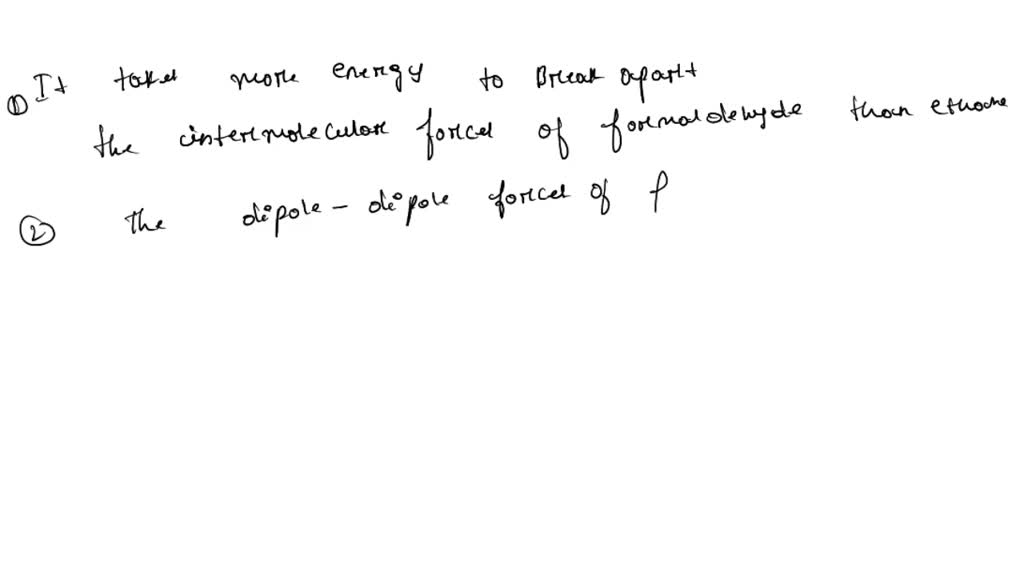 ① It takes more energy to Break apart
the intermolecular forces of formaldehyde than ethane
② the dipole - dipole forces of f